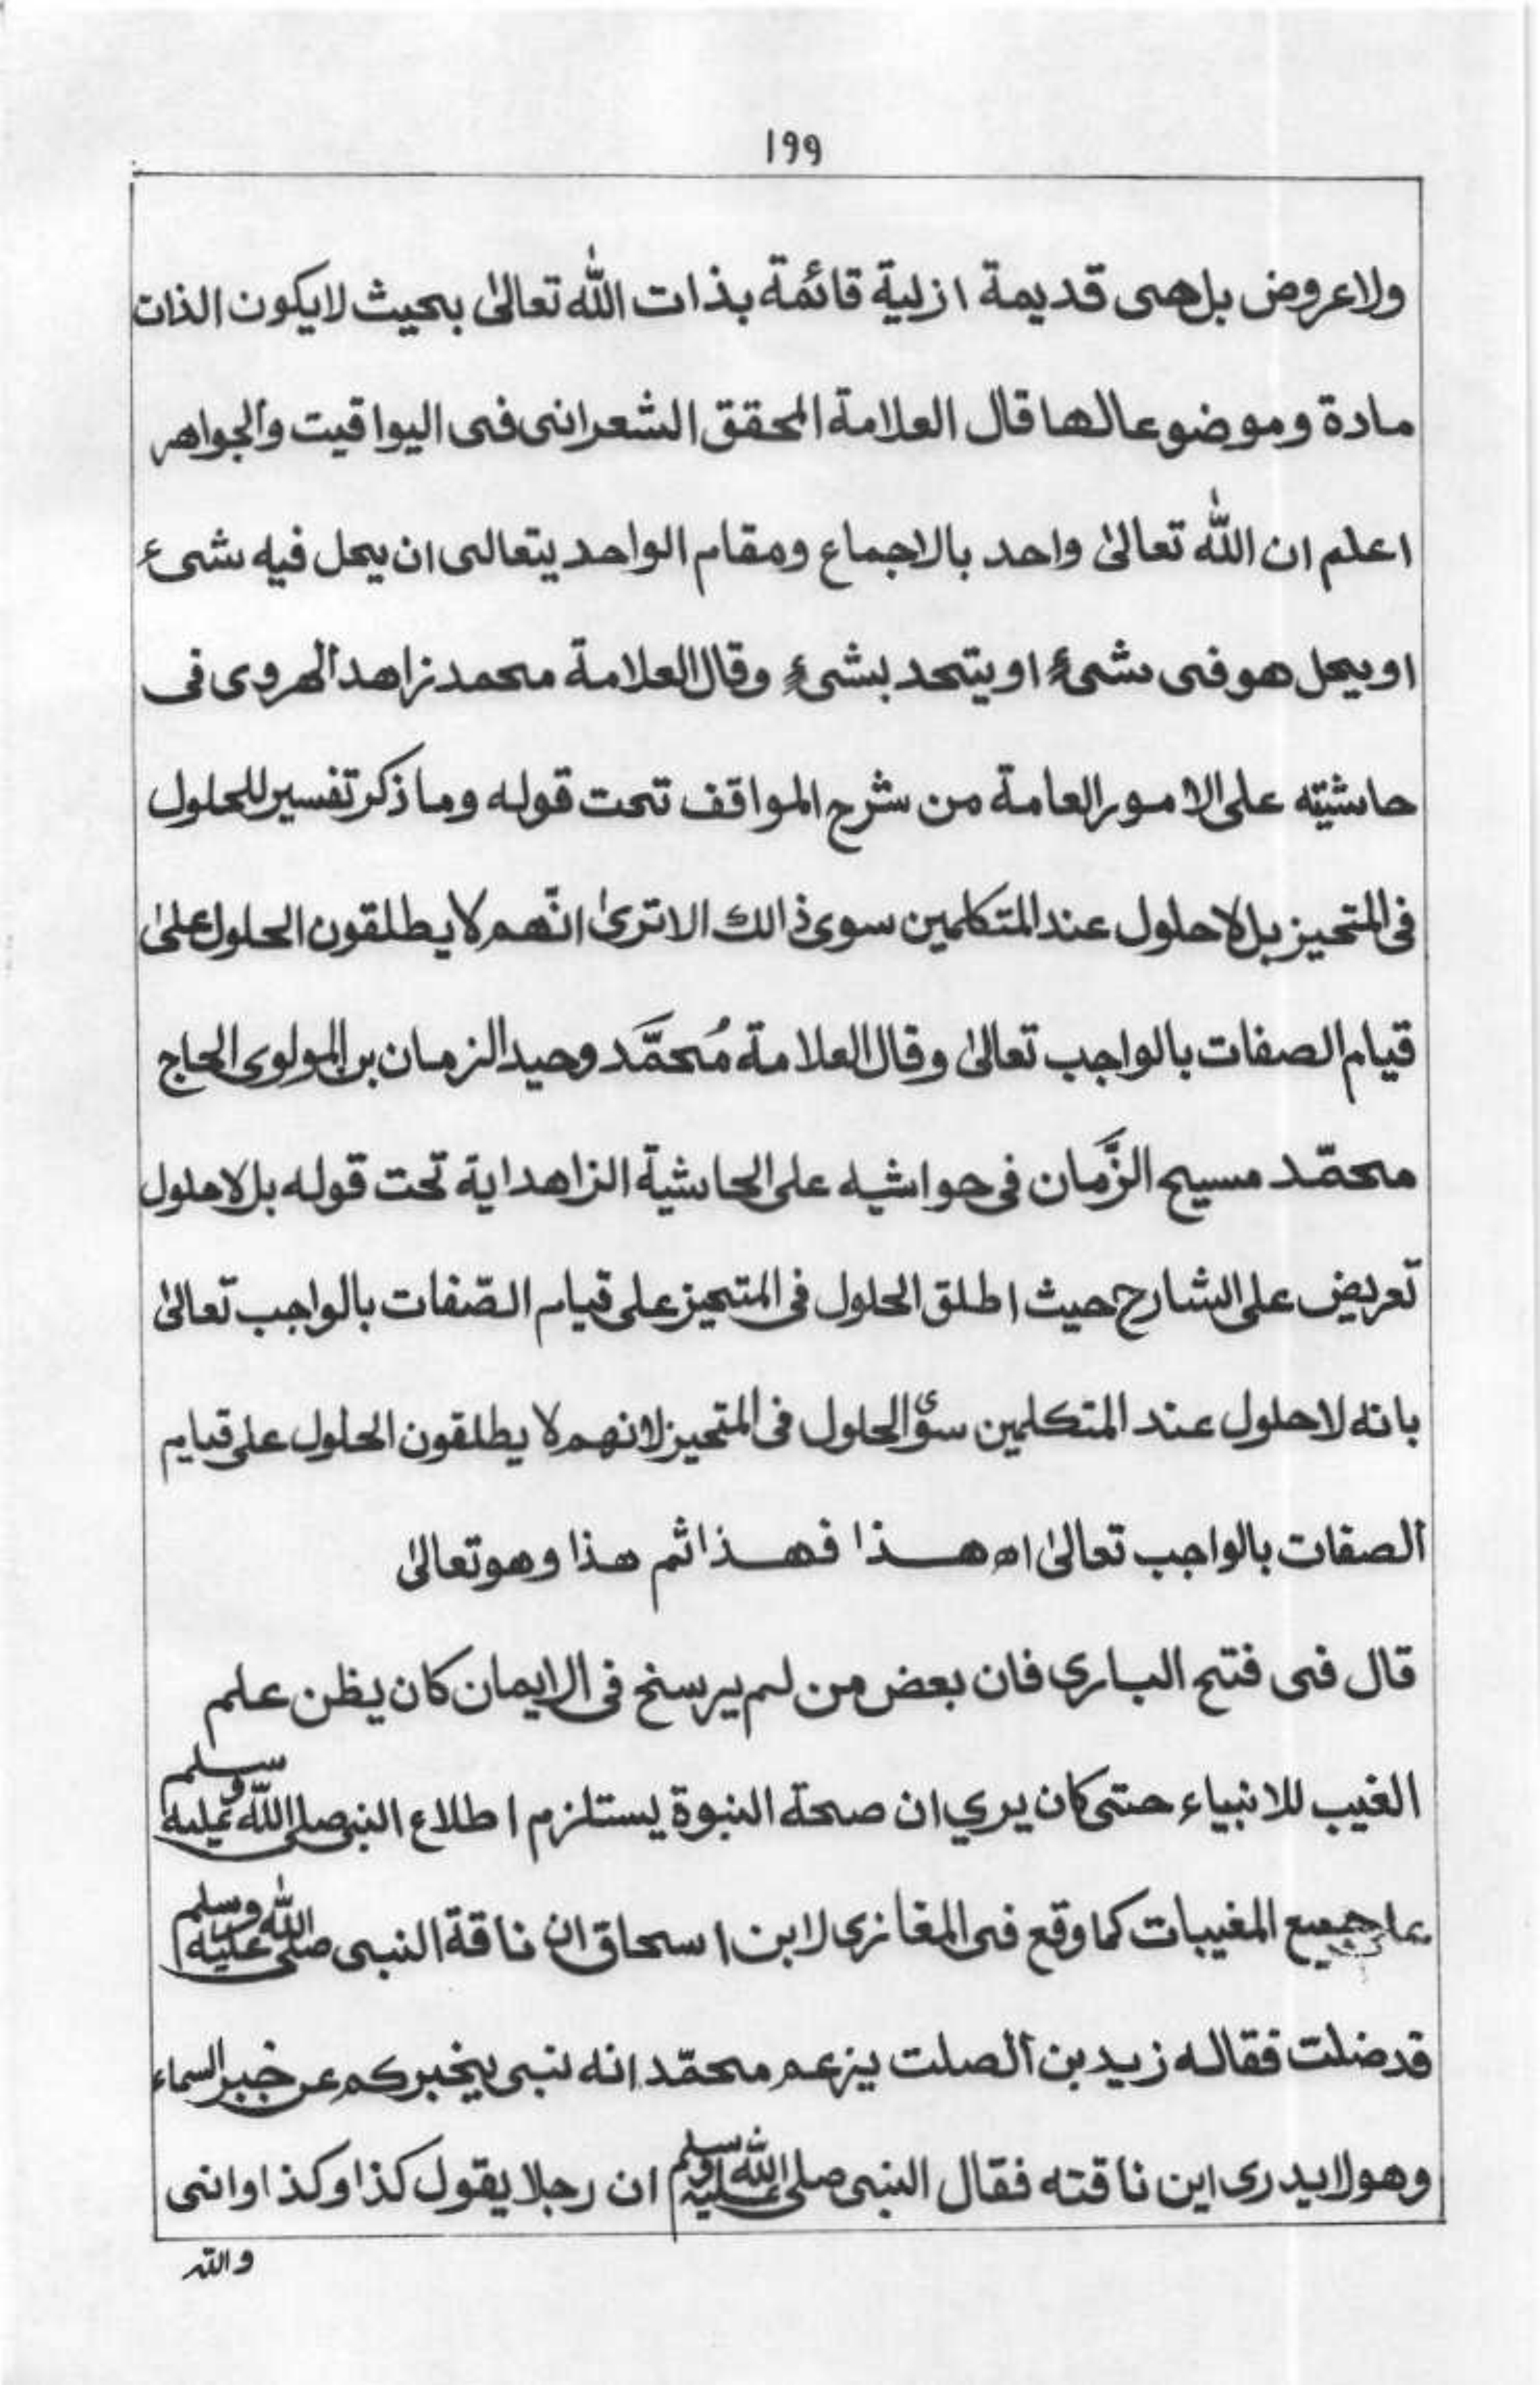 ١٩٩
ولاعروض بل هى قديمة ازلية قائمة بذات الله تعالىٰ بحيث لايكون الذات
مادة وموضوعا لها قال العلامة المحقق الشعرانى فى اليواقيت والجواهر
اعلم ان الله تعالىٰ واحد بالاجماع ومقام الواحد يتعالى ان يحل فيه شىء
او يحل هو فى شىء او يتحد بشىء وقال العلامة محمد زاهد الهروى فى
حاشيته على الامور العامة من شرح المواقف تحت قوله وما ذكر تفسير للحلول
فى المتحيز بل لاحلول عند المتكلمين سوى ذالك الا ترىٰ انّهم لا يطلقون الحلول علىٰ
قيام الصفات بالواجب تعالىٰ وقال العلامة مُحمَّد وحيد الزمان بن المولوى الحاج
محمّد مسيح الزَّمان فى حواشيه على الحاشية الزاهداية تحت قوله بل لاحلول
تعريض على الشارح حيث اطلق الحلول فى المتحيز على قيام الصّفات بالواجب تعالىٰ
بانه لاحلول عند المتكلمين سوٰى الحلول فى المتحيز لانهم لا يطلقون الحلول على قيام
الصفات بالواجب تعالىٰ اه هذا فهذا ثم هذا وهو تعالىٰ
قال فى فتح البارى فان بعض من لم يرسخ فى الايمان كان يظن علم
الغيب للانبياء حتى كان يرى ان صحة النبوة يستلزم اطلاع النبى صلى الله عليه وسلم
جميع المغيبات كما وقع فى المغازى لابن اسحاق ان ناقة النبى صلى الله عليه وسلم
قد ضلت فقال له زيد بن الصلت يزعم محمّد انه نبى يخبركم عن خبر السماء
وهو لايدرى اين ناقته فقال النبى صلى الله عليه وسلم ان رجلا يقول كذا وكذا وانى
والله